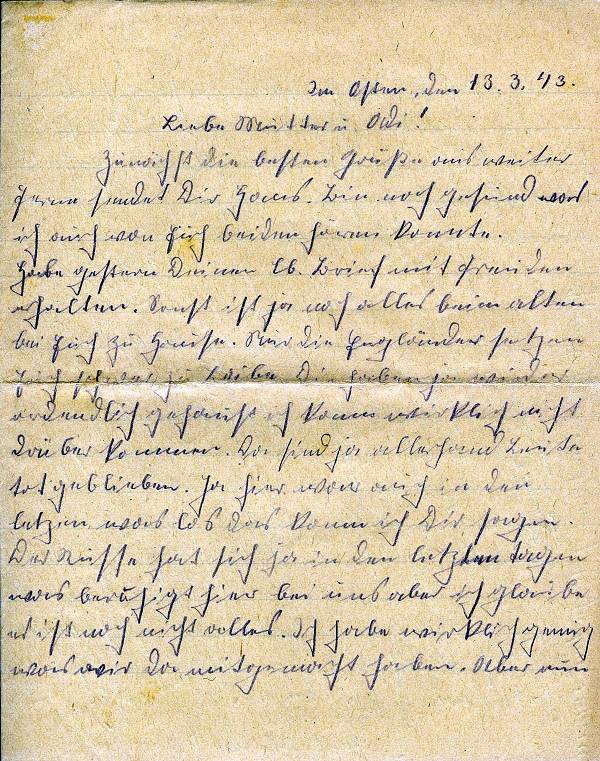 Im Osten, den 13.3.43.
Liebe Mutter u. Odi!
Zunächst die besten Grüße aus weiter
Ferne sendet Dir Hans. Bin noch gesund was
ich auch von Euch beiden hören konnte.
Habe gestern Deinen lb. Brief mit Freuden
erhalten. Sonst ist ja noch alles beim alten
bei Euch zu Hause. Nur die Engländer setzen
Euch schwer zu Leibe. Die haben ja wieder
ordendlich gehaust ich kann wirklich nicht
drüber kommen. Da sind ja allerhand Leute
tot geblieben. Ja hier war auch in den
letzen was los das kann ich Dir sagen.
Der Russe hat sich ja in den letzten tagen
was beruhigt hier bei uns aber ich glaube
es ist noch nicht alles. Ich habe wirklich genug
was wir da mitgemacht haben. Aber nun